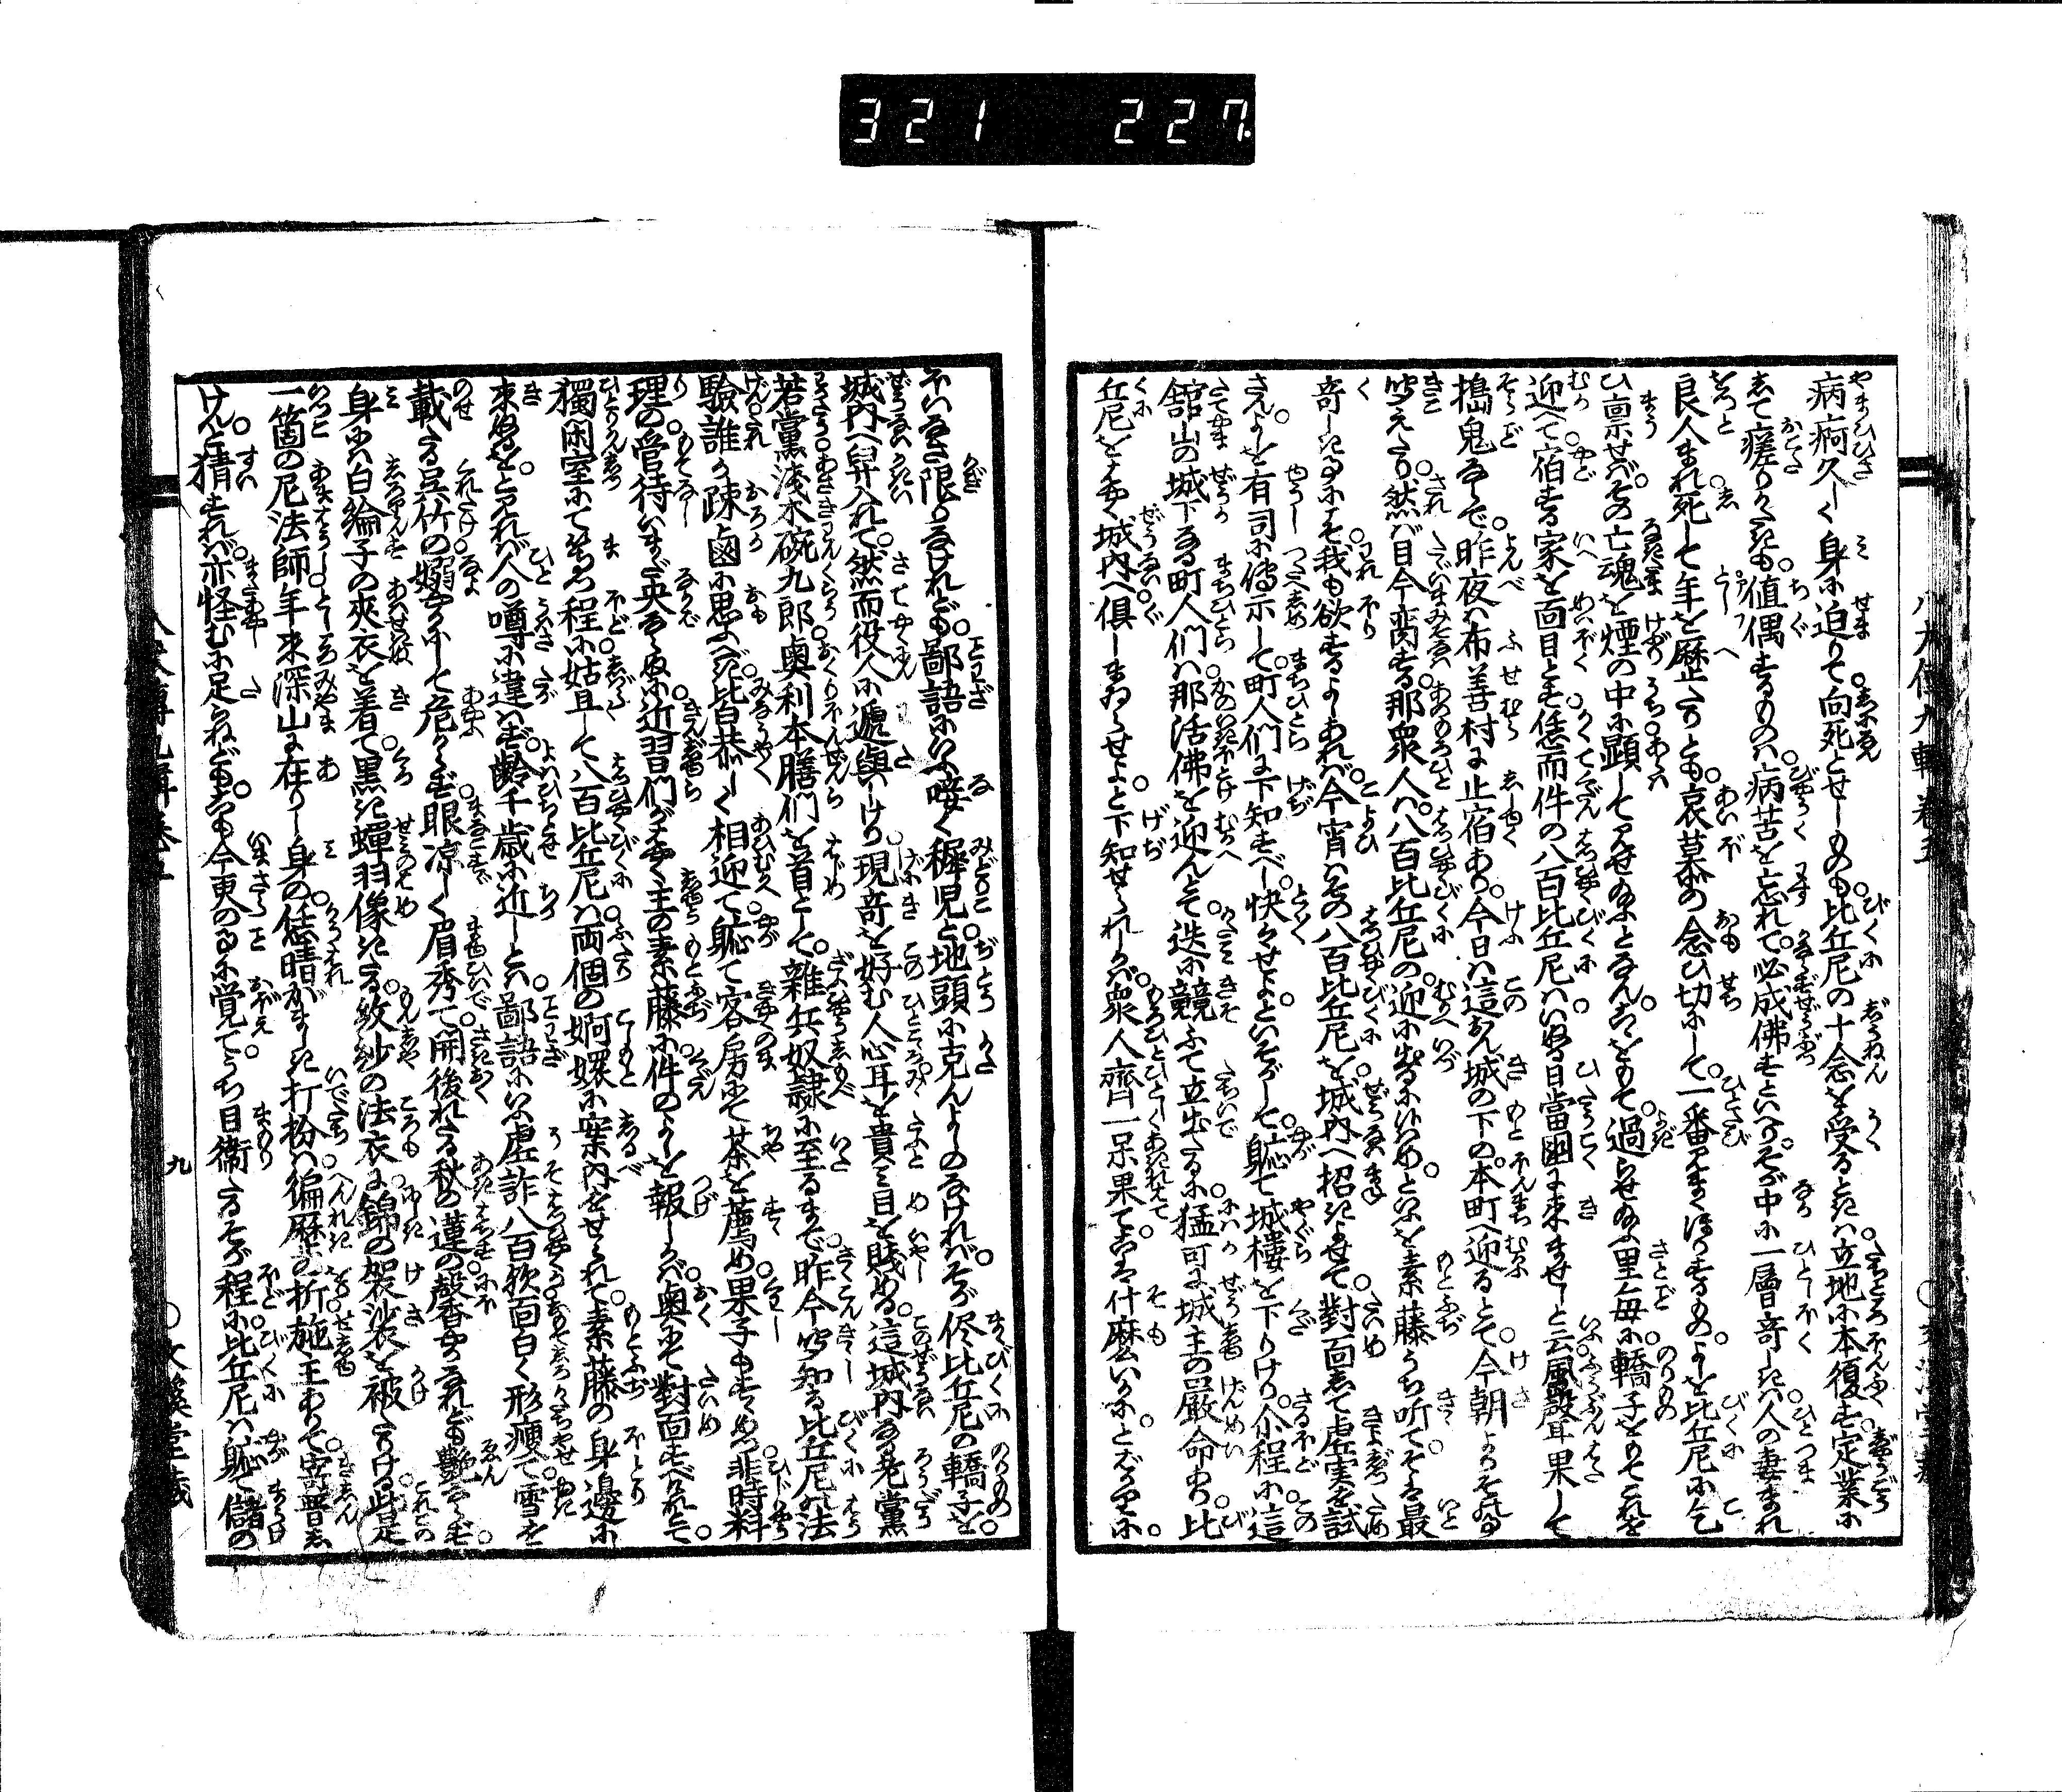 321 227
病痾久しく身に迫りて向死とせしものも比丘尼の十念を受るときは立地に本復す定業に
して瘥りかたきも値偶するものは病苦を忘れて必成佛すといへりそが中に一層奇しきは人の妻まれ
良人まれ死して年を歴しかとも哀慕の念ひ切にして一番見まくほりするものよしを比丘尼に乞
ひ禀せばその亡魂を煙の中に顕して見せぬ
迎へて宿する家を面目とす恁而件の八百比丘尼はいぬる日當國に来ませしと云風聲耳果して
搗鬼ならで昨夜は布善村に止宿あり今日は這城の下の本町へ迎るとて今朝よりそ
聞えたり然ば目今裔する那衆人は八百比丘尼の迎に出るにはといふを素藤うち听てそは最
奇しき事にこそ我も欲するよしあれば今宵はその八百比丘尼を城内へ招きよせて對面して虚実を試
さんよしを有司に傳示して町人们に下知すべし快々せよといそがして軈て城樓を下りけり尒程に這
舘山の城下なる町人们は那活佛を迎んとて迭に競ふて立出るに猛可に城主の嚴命あり比
丘尼をとく城内へ倶しまゐらせよと下知せられしかば衆人齊一呆果てこは什麼いかにとばかりに
ほいなさ限りなけれども鄙語にいふ啼く穉児と地頭に克んよしのなければそが侭比丘尼の轎子を
城内へ舁入れて然而役人に逓與しけり現奇を好む人心耳を貴み目を賤める這城内なる老黨
若黨淺木碗九郎奥利本膳們を首として雜兵奴隷に至るまで昨今听知る比丘尼の法
驗誰か疎鹵に思ふべき比白恭しく相迎て軈て客房にて茶を薦め果子もすゝめつ非時料
理の管待いまだ央ならぬに近習們がとく主の素藤に件のよしを報しかば奥にて對面すべしとて
獨閑室にてをる程に姑且して八百比丘尼は両個の婀嬛に案内をせられて素藤の身邊に
来ぬるをと見れば人の噂に違はず齢千歳に近しとは鄙語にいふ虚詐八百歟面白く形痩て雪を
載たる呉竹の嫋やかにして危からず眼凉しく眉秀て開後れたる秋の蓮の馨香なけれども艶ならず
身には白綸子の夾衣を着て黒き蟬羽像きたる紋紗の法衣に錦の袈裟衣を被たりける是
一箇の尼法師年来深山に在りし身の恁晴がましき打扮は徧歴の折施主ありて寄晋し
けんと猜すれば亦怪むに足らねども今更のに覚てうち目衞るそが程に比丘尼は軈て儲の
八犬傳九輯卷五
九
文溪堂藏